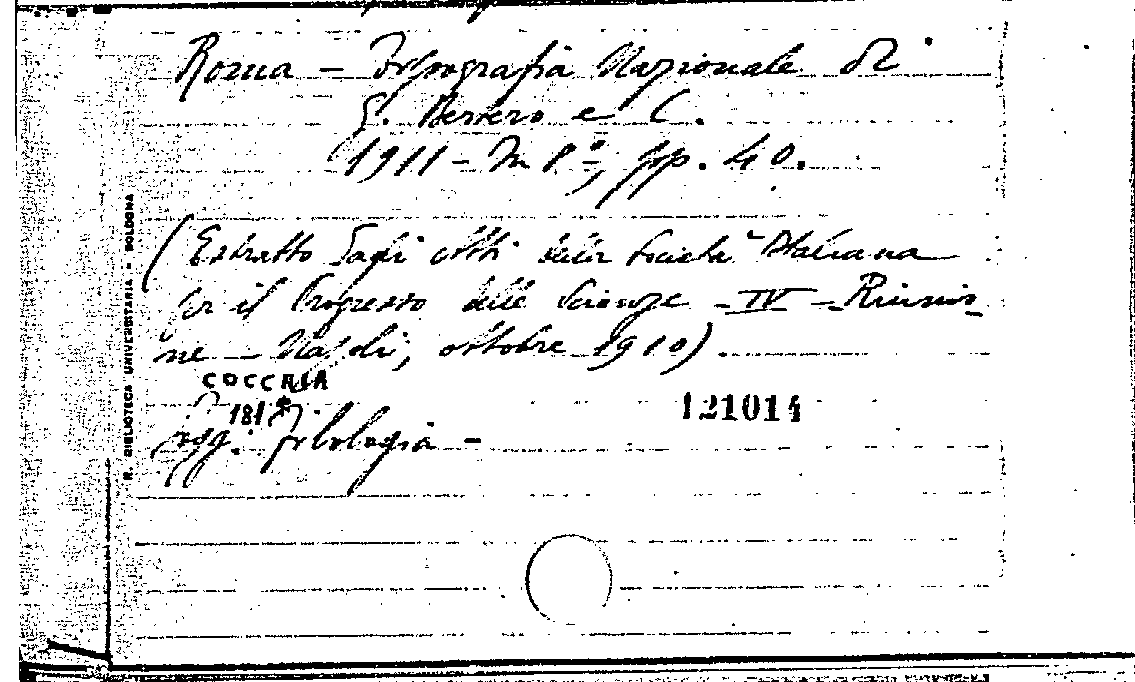 Roma - Tipografia Nazionale di
G. Bertero e C.
1911 - In 8º, pp. 40.
(Estratto dagli Atti della Società Italiana
per il Progresso delle Scienze - IV - Riunio-
ne - Napoli, ottobre 1910).
COCCHIA
181
121014
Sogg. Filologia -
R. BIBLIOTECA UNIVERSITARIA - BOLOGNA